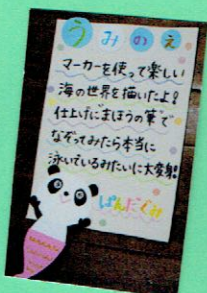 うみのえ
マーカーを使って楽しい
海の世界を描いたよ!
仕上げにまほうの筆で
なぞってみたら本当に
泳いでいるみたいに大変身!
ぱんだぐみ